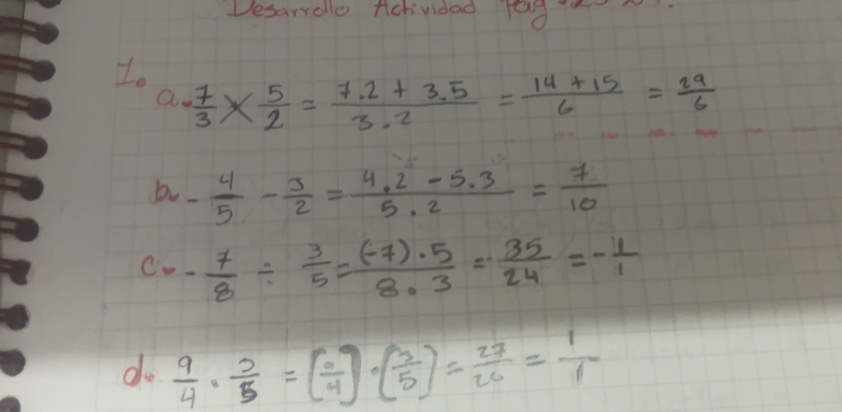 Desarrollo Actividad Pag
I.
a. 7/3 × 5/2 = (7.2 + 3.5)/(3.2) = (14 + 15)/6 = 29/6
b. - 4/5 - 3/2 = (4.2 - 5.3)/(5.2) = 7/10
c. - 7/8 ÷ 3/5 = ((-7).5)/(8.3) = 35/24 = - 1/1
d. 9/4 . 3/5 = (9/4) . (3/5) = 27/20 = 1/1